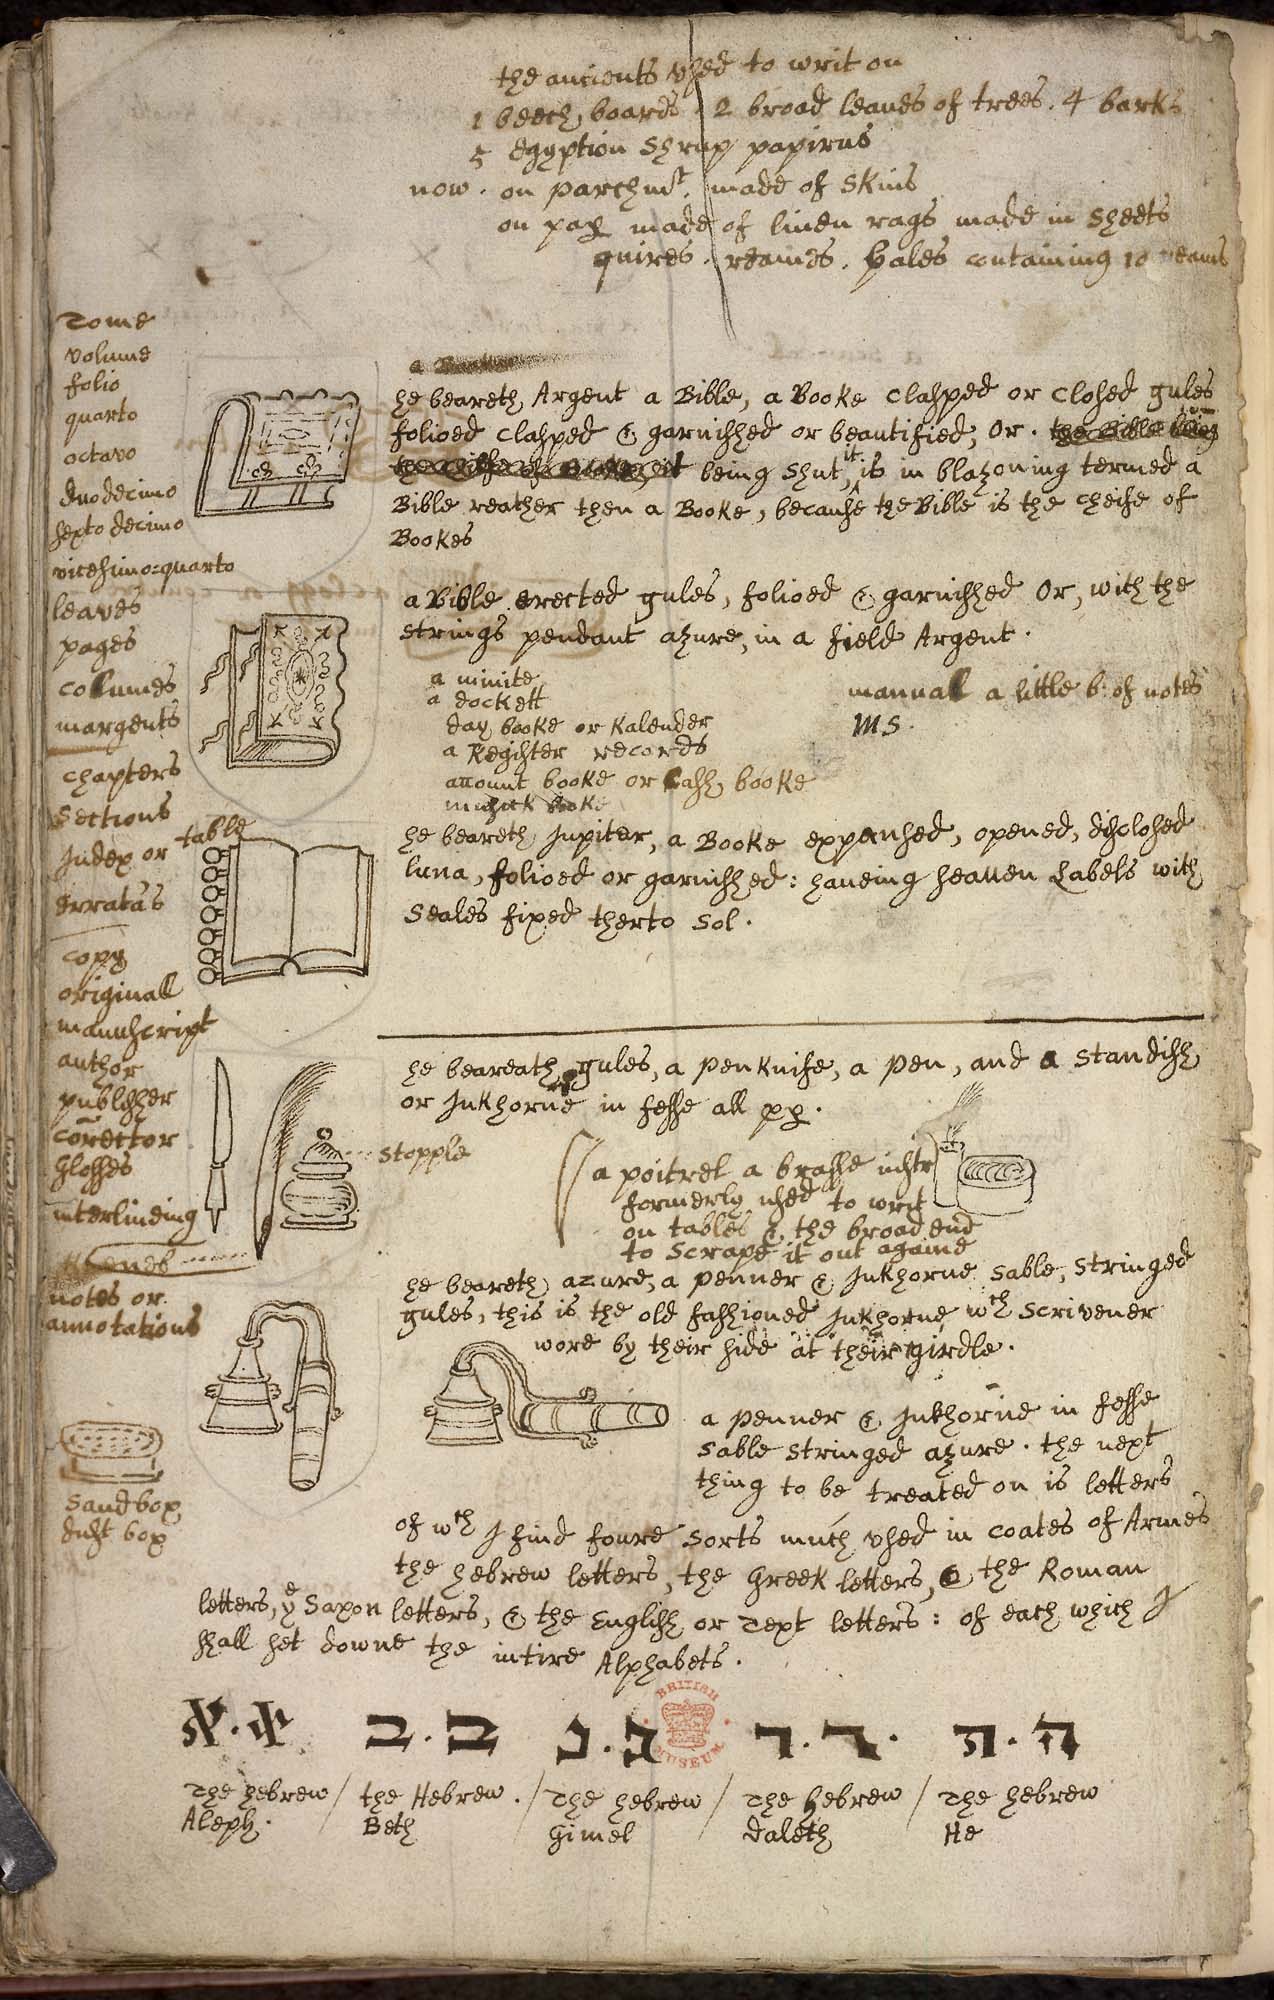 the ancients vsed to writ on
1 beech boards . 2 broad leaues of trees . 4 barks
5 egyption Shrup papirus
now . on parchmt. made of Skins
on pap made of linen rags made in sheets
quires . reames . bales containing 10 reams
Tome
volume
folio
quarto
octavo
duodecimo
sexto decimo
vicesimo=quarto
leaves
pages
columes
margents
chapters
Sections
Index or table
erratas
copy
originall
manuscript
author
publisher
corector
glosses
interlineing
notes or
annotations
Sandbox
dust box
a
he beareth Argent a Bible, a Booke Clasped or Closed gules
folioed clasped & garnished or beautified, Or . the Bible being
being shut, it is in blazoning termed a
Bible reather then a Booke, because the Bible is the cheife of
Bookes
a Bible erected gules, folioed & garnished Or, with the
strings pendant azure, in a field Argent .
a minite
a dockett
day booke or Kalender
a Register records
acount booke or Cash booke
musick booke
manuall a little b: of notes
MS .
he beareth Jupiter, a Booke expansed, opened, disclosed
luna, folioed or garnished : haueing seauen Labels with
Seales fixed therto Sol .
he beareath gules, a penknife, a pen, and a standish
or Inkhorne in fesse all pp .
stopple
a poitrel a brasse instr
formerly used to writ
on tables & the broad end
to scrape it out againe
he beareth azure, a penner & Inkhorne Sable, Stringed
gules, this is the old fashioned Inkhorne wch Scrivener
wore by their side at their girdle .
a penner & Inkhorne in fesse
sable stringed azure . the next
thing to be treated on is letters
of wch I find foure sorts much vsed in coates of Armes
the hebrew letters, the Greek letters, & the Roman
letters, ye Saxon letters, & the English or Text letters : of each which I
shall set downe the intire Alphabets .
BRITISH MUSEUM
א . א ב . ב נ . נ ד . ד . ה . ה
The hebrew / the Hebrew . / The hebrew / The hebrew / The hebrew
Aleph . Beth Gimel Daleth He